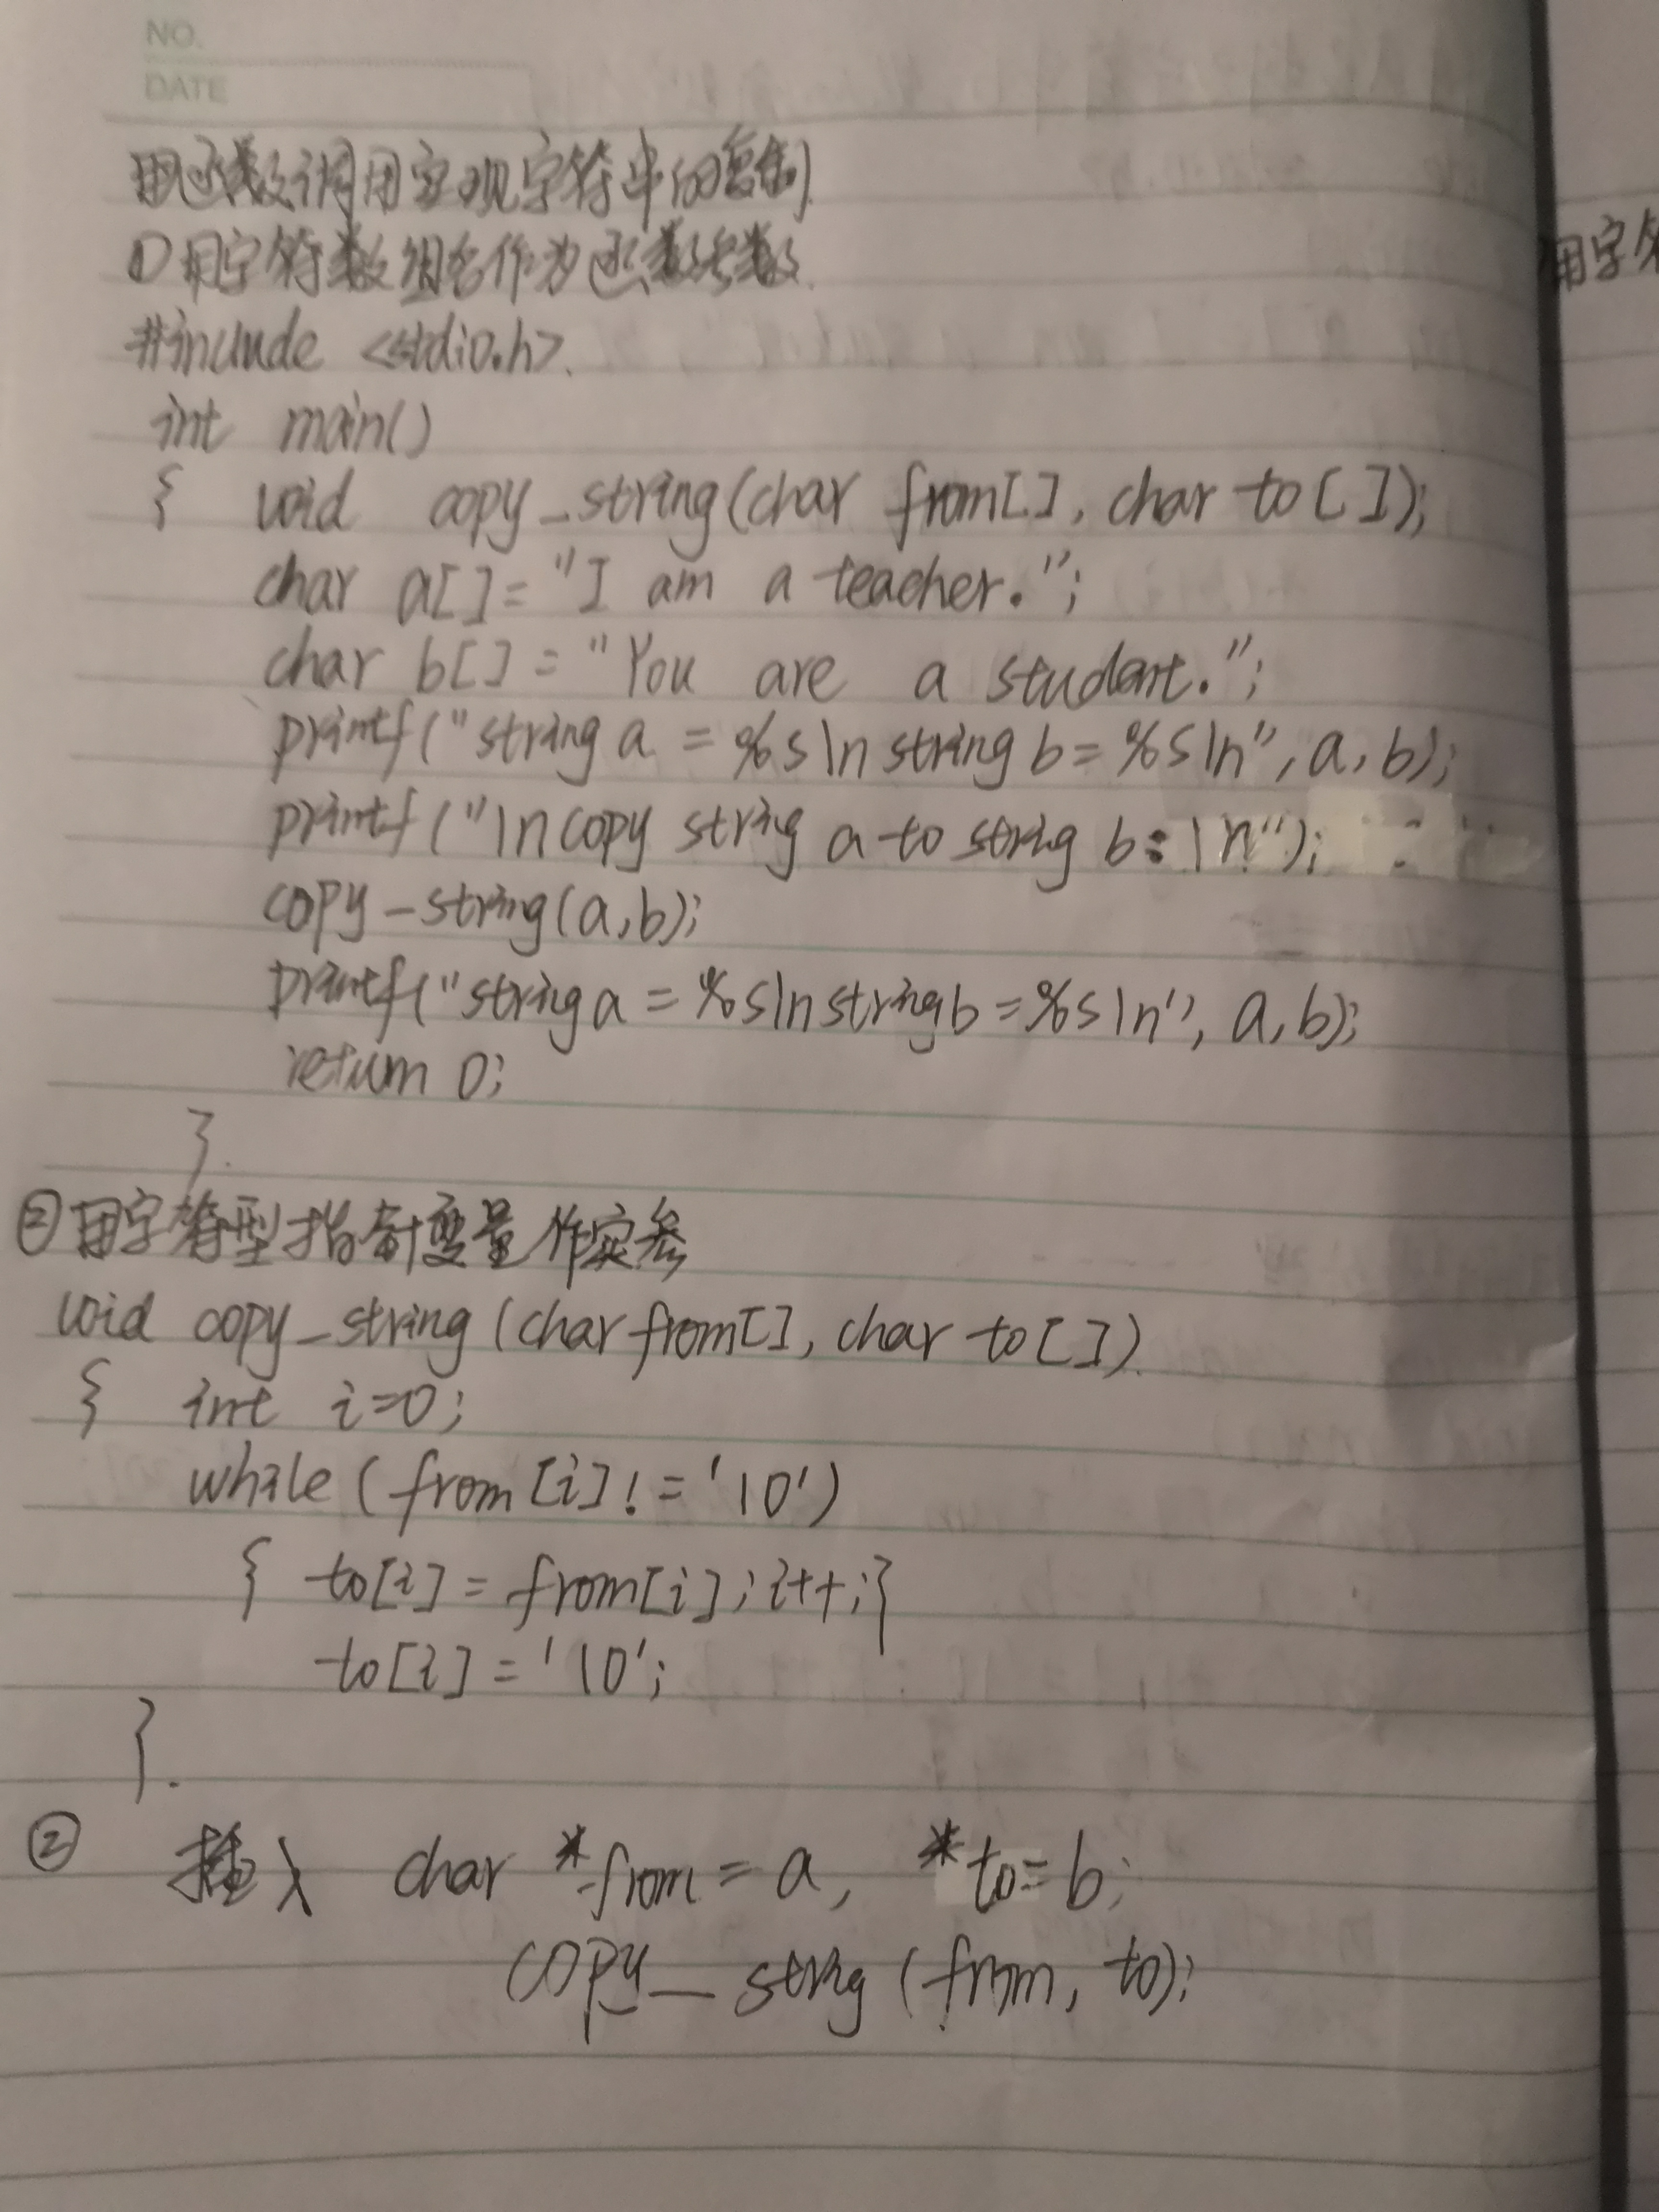 NO.
DATE
用函数调用实现字符串的复制.
①用字符数组名作为函数参数.
#include <stdio.h>.
int main()
{ void copy_string(char from[], char to[]);
char a[]="I am a teacher.";
char b[]="You are a student.";
printf("string a = %s\n string b = %s\n", a, b);
printf("\n copy string a to string b:\n");
copy_string(a,b);
printf("string a = %s\n string b = %s\n", a, b);
return 0;
}.
②用字符型指针变量作实参
void copy_string (char from[], char to[]).
{ int i=0;
while (from[i]!='\0')
{ to[i] = from[i]; i++;}
to[i] = '\0';
}.
② 插入 char *from = a, *to = b;
copy_string (from, to);
用字符